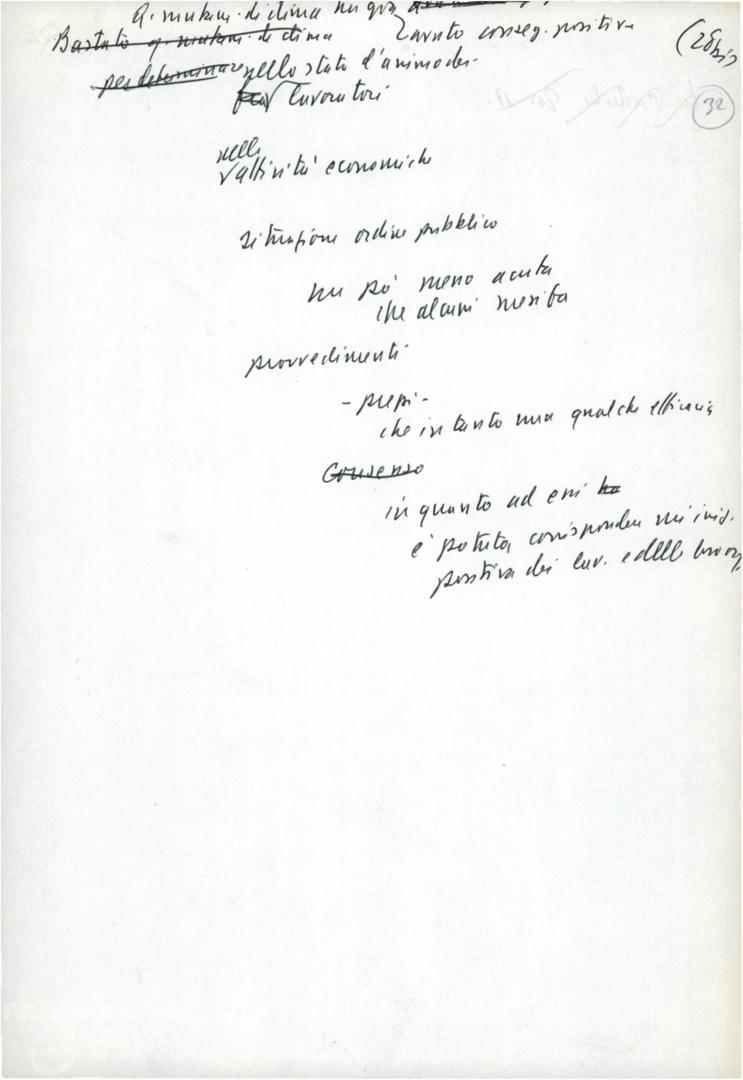 Q. mutam. di clima ha già
Bastato q. mutam. di clima avuto conseg. positive
(28bis)
per determinare nello stato d'animo dei
32
fra lavoratori
nelle
attività economiche
situazione ordine pubblico
un pò meno acuta
che alcuni mesi fa
provvedimenti
- presi -
che in tanto una qualche efficacia
Consenso
in quanto ad essi ha
è potuta corrispondere un' iniz.
positiva dei lav. e delle loro org.